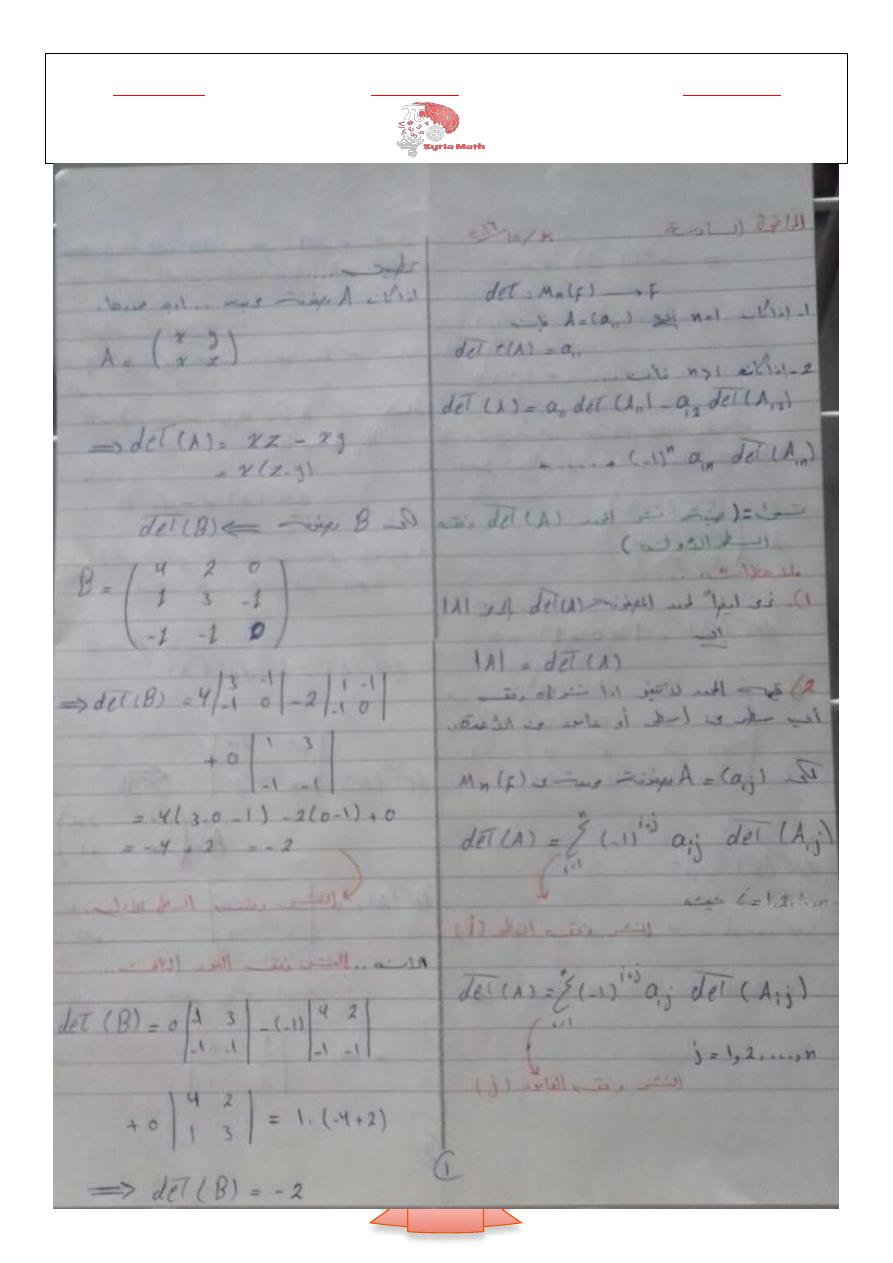 Syria Math
المحاضرة السادسة
det : Mn(F) ⟶ F
1- إذا كانت n=1 A=(a₁₁) فإن
det t(A) = a₁₁
2- إذا كانت n>1 فإن ...
det(A) = a₁₁ det(A₁₁) - a₁₂ det(A₁₂)
+ ...... + (-1)ⁿ a₁ₙ det(A₁ₙ)
نشر المحدد det(A) وفق
السطر الأول)
ملاحظات ...
1) المصفوفة det(A) بالرمز |A|
أي
|A| = det(A)
2) قيمة المحدد لا تتغير إذا نشرناه وفق
أي سطر من أسطر أو عامود من الأعمدة..
لتكن A = (aᵢⱼ) مصفوفة مربعة من Mn(F)
det(A) = Σ (-1)^(i+j) aᵢⱼ det(Aᵢⱼ)
حيث i = 1,2,..,n
النشر وفق السطر (i)
det(A) = Σ (-1)^(i+j) aᵢⱼ det(Aᵢⱼ)
i=1
j = 1,2,....,n
النشر وفق العامود (j)
إذا كانت A مصفوفة مربعة ...
A = ( x y
x z )
⟹ det(A) = xz - xy
= x(z-y)
لتكن B مصفوفة ⟸ det(B)
B = ( 4 2 0
1 3 -1
-1 -1 0 )
⟹ det(B) = 4 | 3 -1 | - 2 | 1 -1 |
| -1 0 | | -1 0 |
+ 0 | 1 3 |
| -1 -1 |
= 4(3.0 - 1) - 2(0-1) + 0
= -4 + 2 = -2
النشر وفق السطر الأول
الآن .. النشر وفق العمود الثالث ...
det(B) = 0 | 1 3 | - (-1) | 4 2 |
| -1 -1 | | -1 -1 |
+ 0 | 4 2 | = 1.(-4+2)
| 1 3 |
⟹ det(B) = -2
1